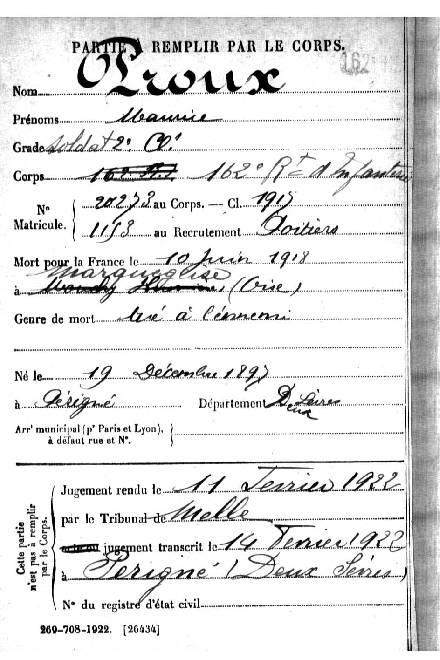 PARTIE À REMPLIR PAR LE CORPS.
162
Nom Proux
Prénoms Maurice
Grade Soldat 2e Cl.
Corps 162e Rt d'Infanterie
N° Matricule. 20273 au Corps. — Cl. 1917
1153 au Recrutement Poitiers
Mort pour la France le 10 Juin 1918
Marquéglise
à (Oise)
Genre de mort tué à l'ennemi
Né le 19 Décembre 1897
à Périgné Département Deux Sèvres
Arrt municipal (pr Paris et Lyon),
à défaut rue et N°.
Cette partie n'est pas à remplir par le Corps.
Jugement rendu le 11 Février 1922
par le Tribunal de Melle
jugement transcrit le 14 Février 1922
à Périgné (Deux Sèvres)
N° du registre d'état civil
269-708-1922. [26434]